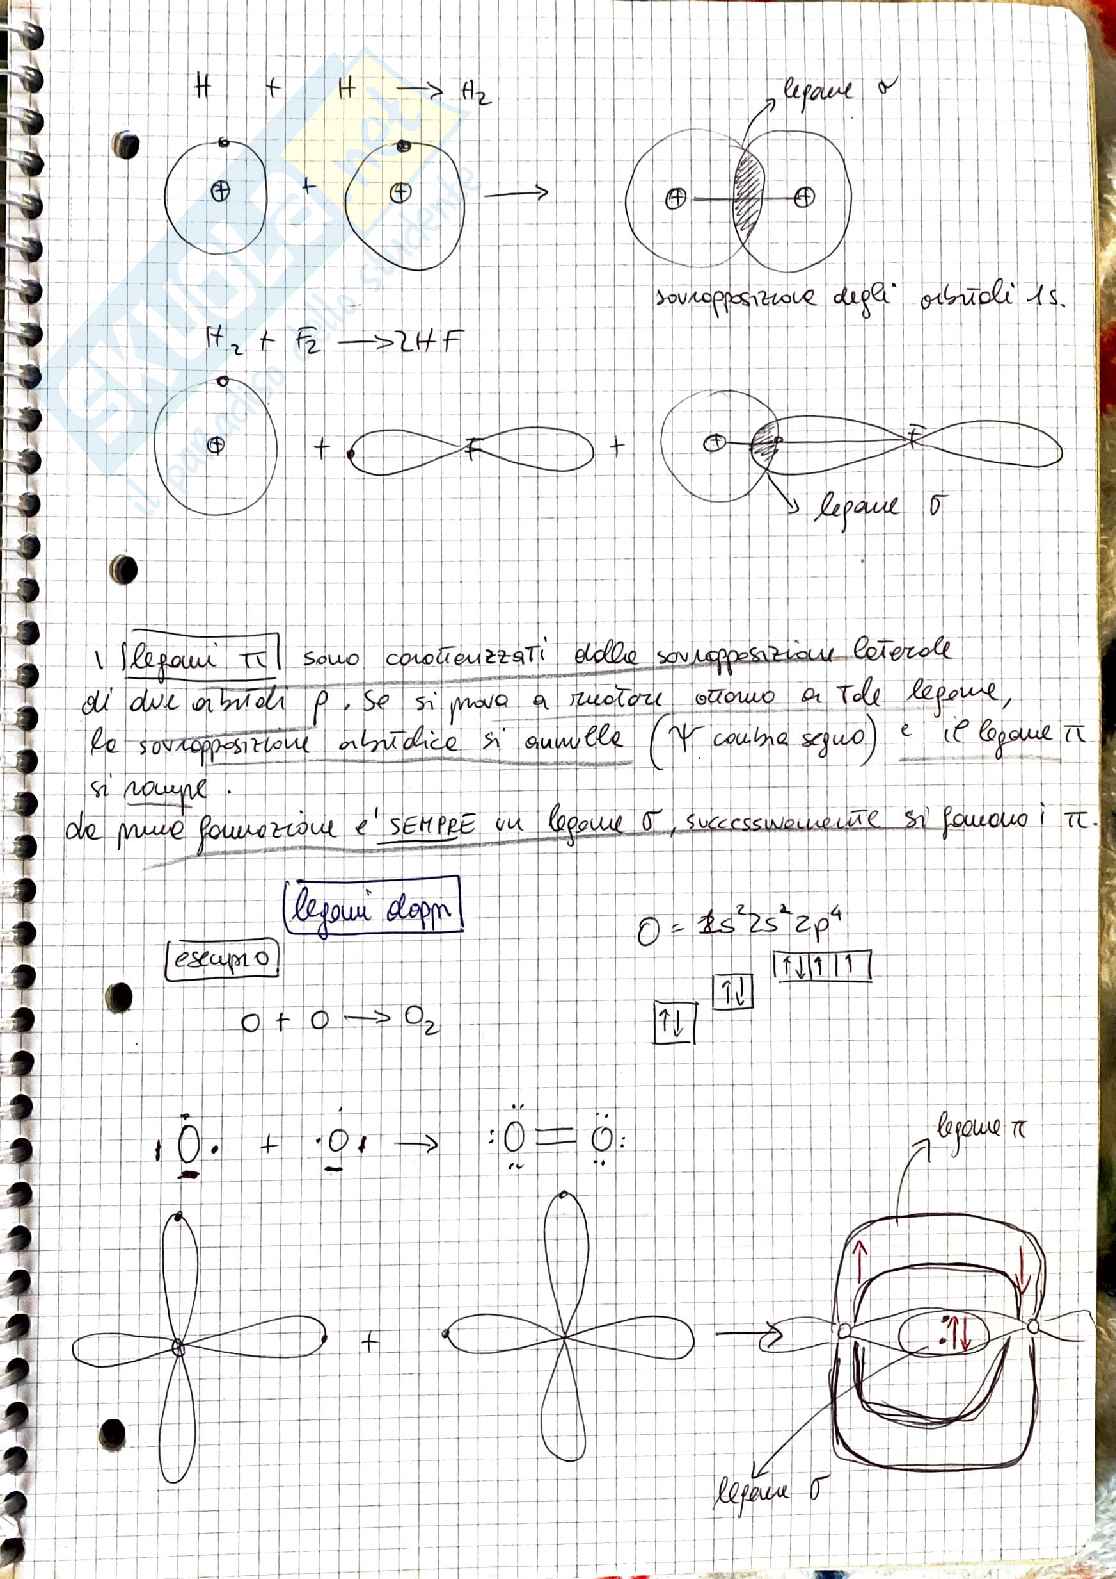 H + H → H₂
legame σ
⊕ + ⊕ → ⊕ ⊕
sovrapposizione degli orbitali 1s.
H₂ + F₂ → 2HF
⊕ + F + ⊕ F
legame σ
I legami π sono caratterizzati dalla sovrapposizione laterale
di due orbitali p. Se si prova a ruotare attorno a tale legame,
la sovrapposizione orbitalica si annulla (Ψ cambia segno) e il legame π
si rompe.
La prima formazione e' SEMPRE un legame σ, successivamente si formano i π.
legami doppi
O = 1s² 2s² 2p⁴
esempio
↑↓ ↑ ↑
↑↓
↑↓
O + O → O₂
O + O → O = O
legame π
+ →
↑ ↓
↑↓
legame σ
SKUOLA.net
il paradiso dello studente